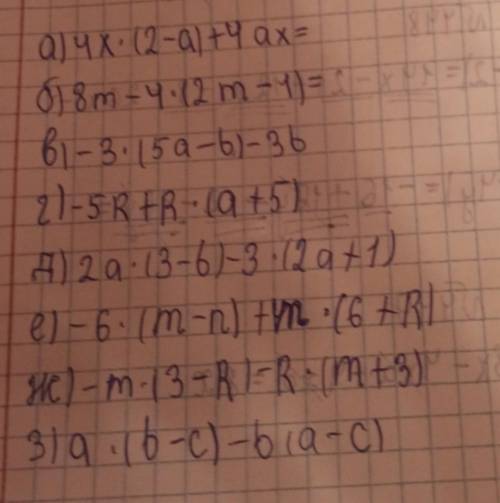 а) 4x·(2-a)+4ax=
б) 8m-4·(2m-1)=
в) -3·(5a-b)-3b
г) -5R+R·(a+5)
д) 2a·(3-6)-3·(2a+1)
е) -6·(m-n)+m·(6+R)
ж) -m·(3-R)-R·(m+3)
з) a·(b-c)-b(a-c)